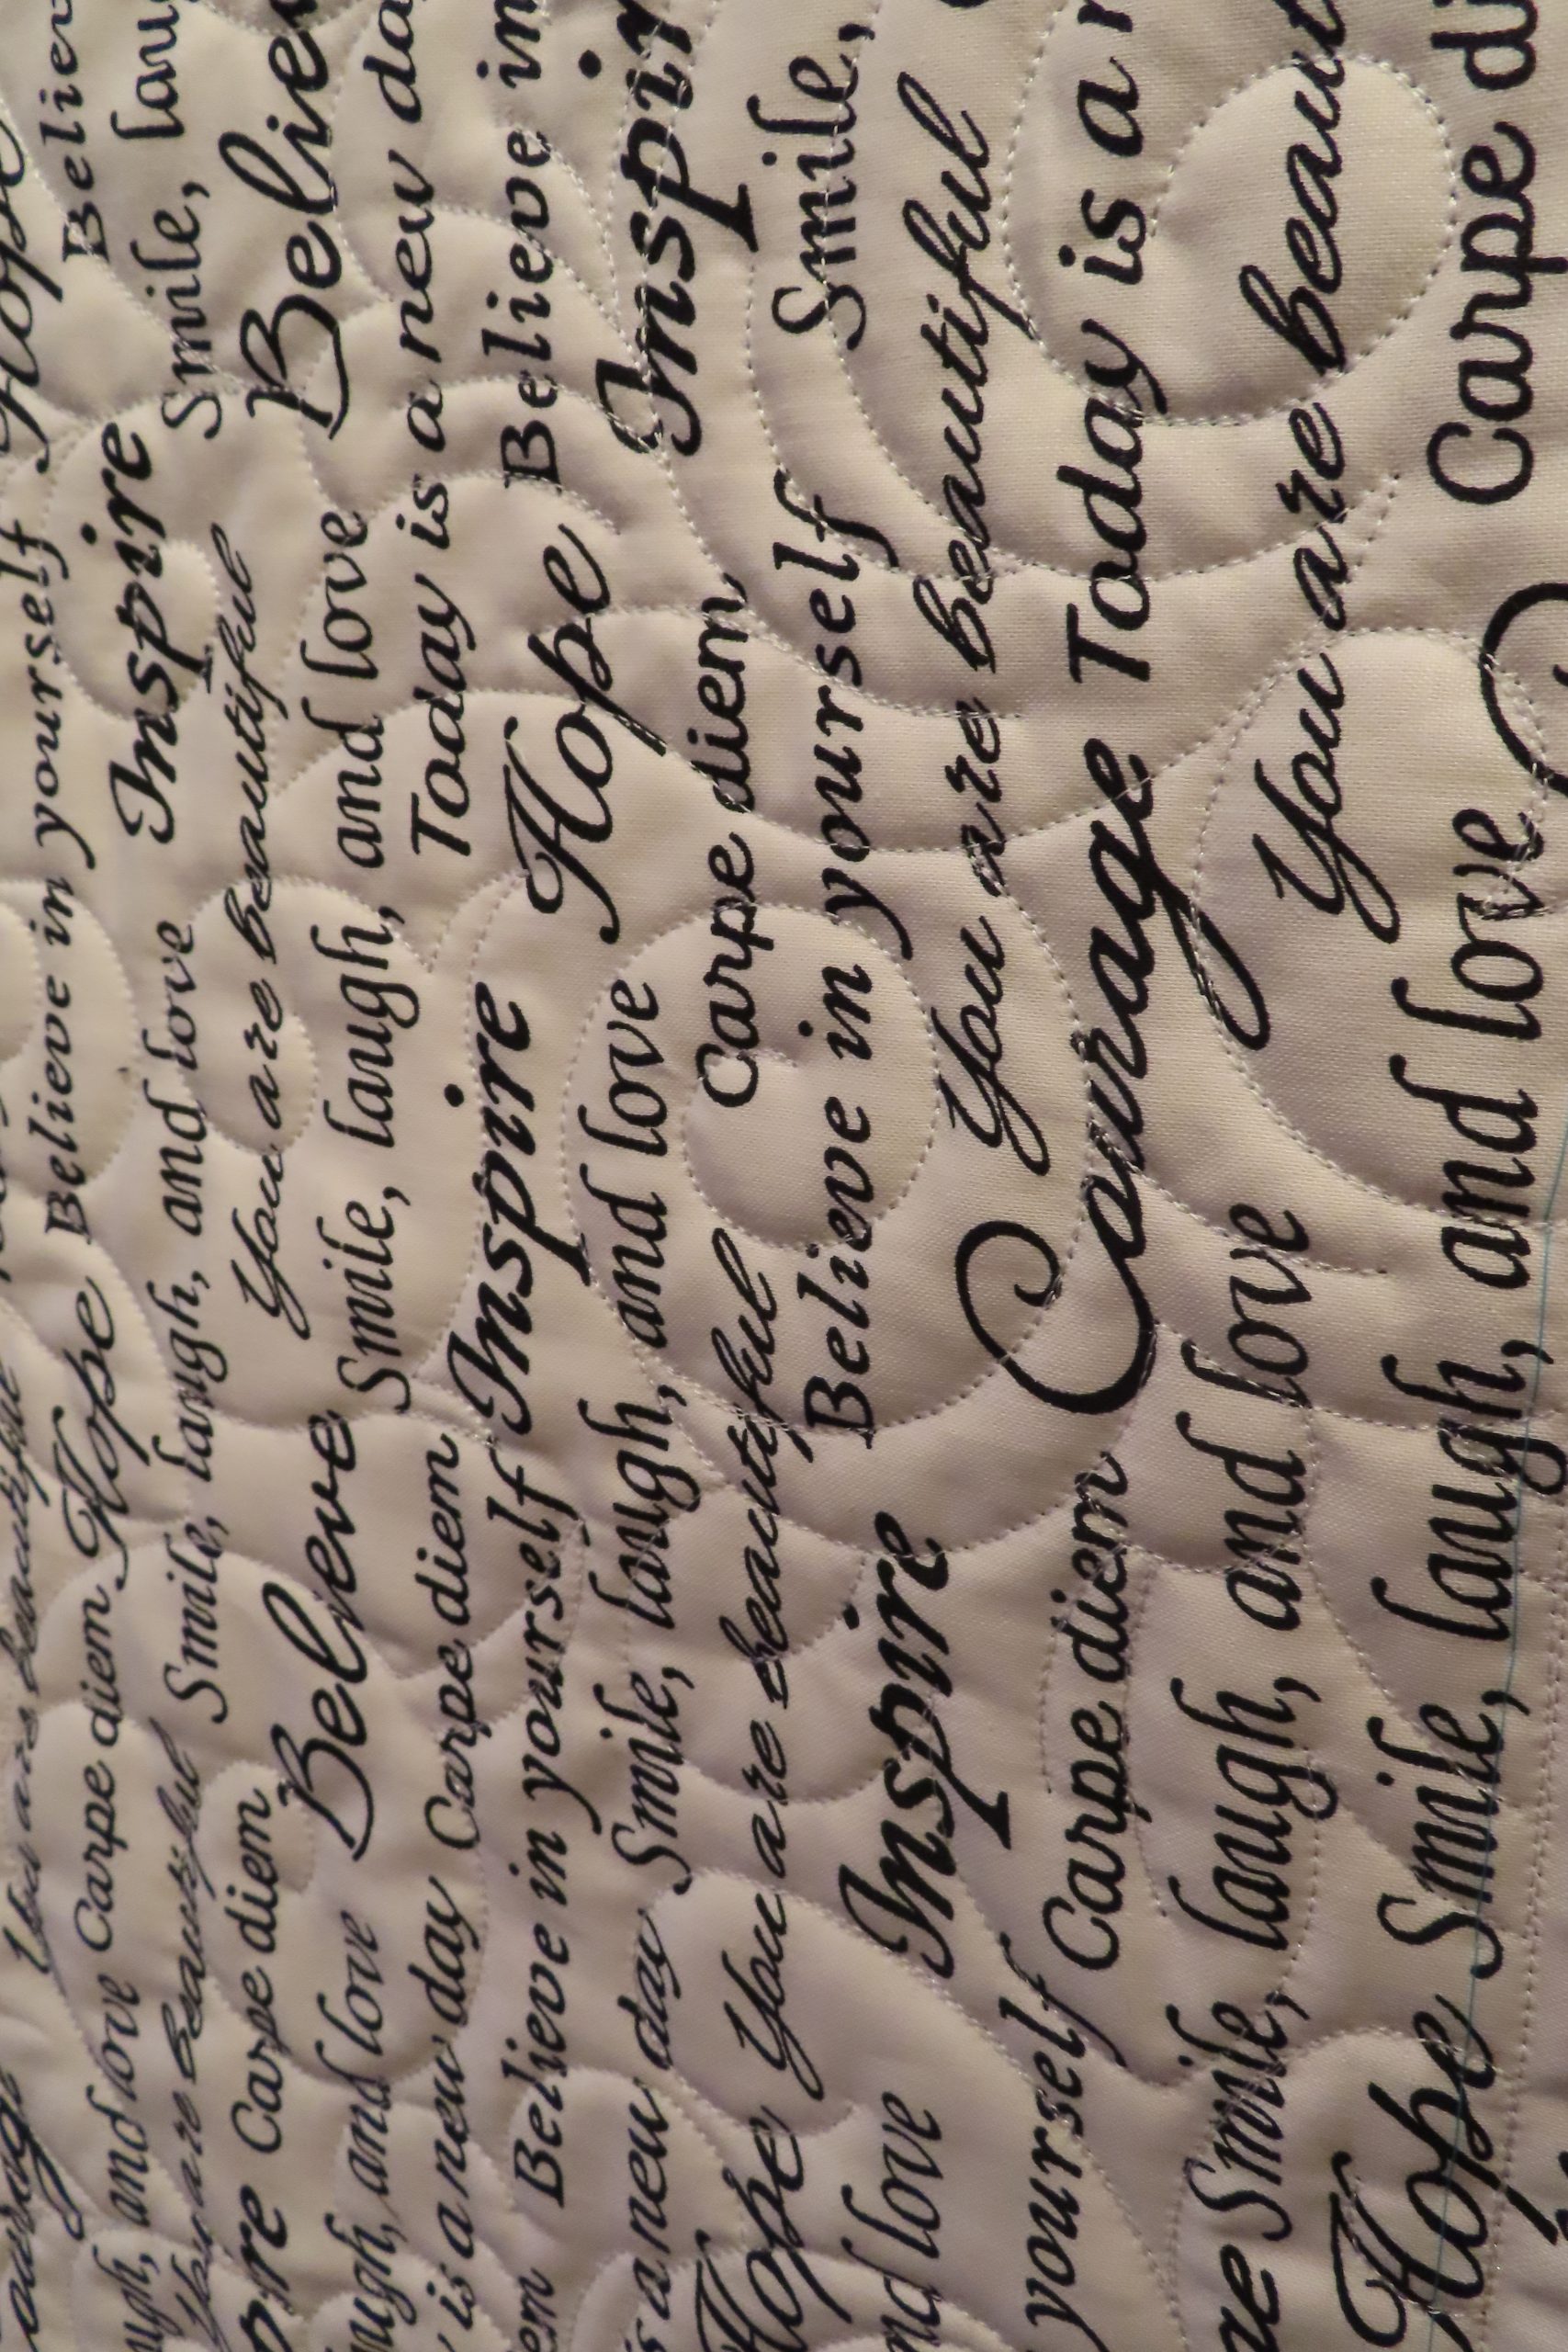 Courage You are beautiful Hope
ugh, and love Carpe diem Hope Believe in yourself Believ
You are beautiful Smile, laugh, and love Inspire Smile, laug
re Carpe diem You are beautiful
ugh, and love Believe Smile, laugh, and love Believe
is a new day Carpe diem Today is a new da
em Believe in yourself Inspire Hope Believe in
s a new day Smile, laugh, and love Inspir
Hope You are beautiful Carpe diem
nd love Inspire Believe in yourself Smile,
You are beautiful
yourself Carpe diem Courage Today is a n
re Smile, laugh, and love You are beaut
Hope Smile, laugh, and love Carpe di